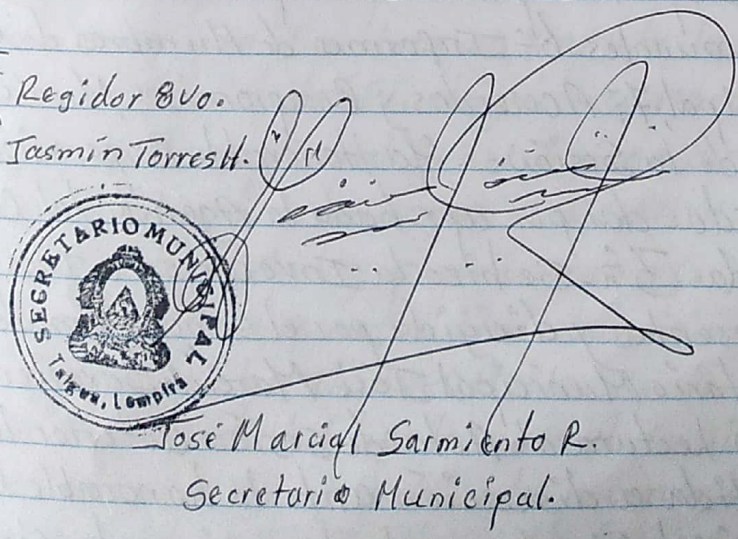 Regidor 8vo.
Jasmín Torres H.
SECRETARIO MUNICIPAL
Talgua, Lempira
José Marcial Sarmiento R.
Secretario Municipal.